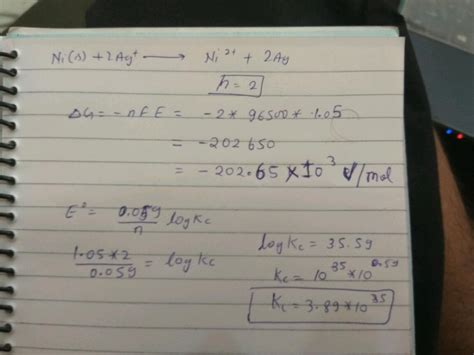 Ni(s) + 2Ag⁺ ⟶ Ni²⁺ + 2Ag
n = 2
ΔG = -nFE = -2 * 96500 * 1.05
= -202650
= -202.65 × 10³ J/mol
E° = 0.059/n log Kc
1.05*2/0.059 = log Kc
log Kc = 35.59
Kc = 10³⁵ × 10⁰·⁵⁹
Kc = 3.89 * 10³⁵